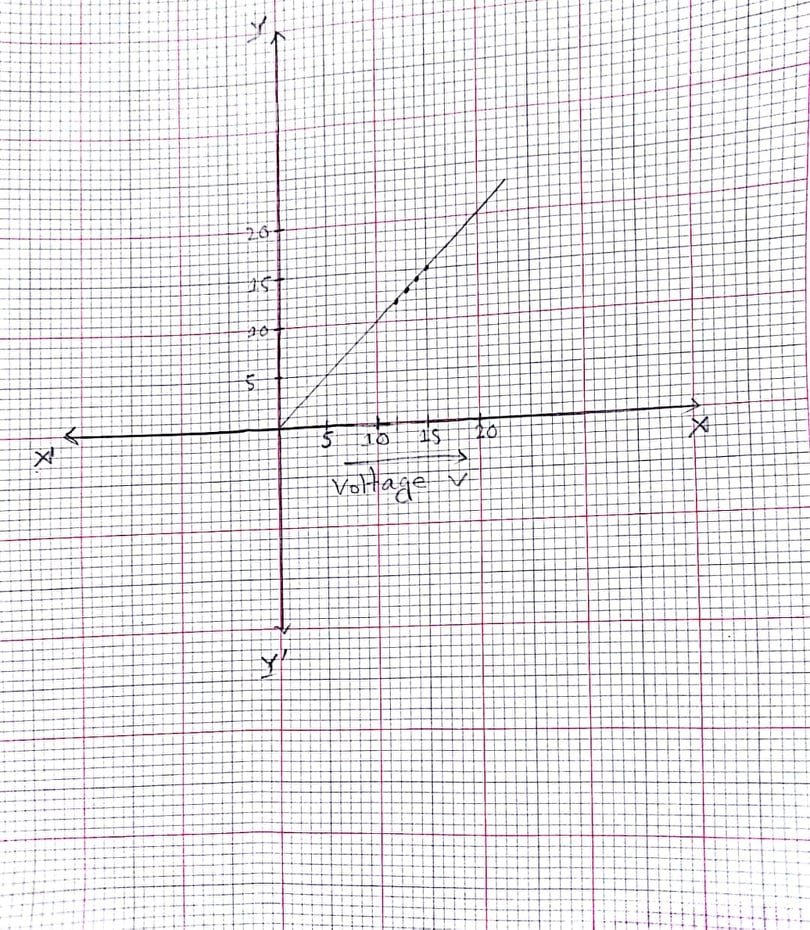 Y
20
15
10
5
X' 5 10 15 20 X
Voltage V
Y'